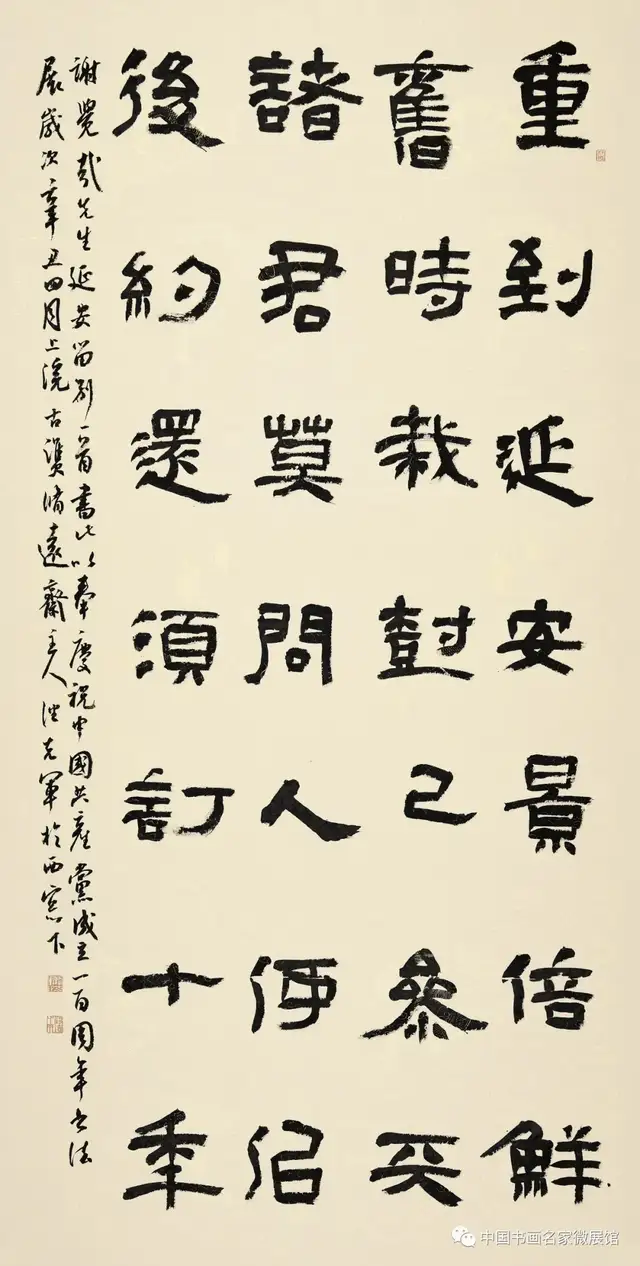 重到延安景倍鮮
舊時栽尌已參天
諸君莫問人何佀
後約還須訂十年
謝覺哉先生延安留別一首書此以奉慶祝中國共產黨成立一百周年書法
展歲次辛丑四月上浣古冀脩遠齋主人克軍於西窓下
中国书画名家微展馆